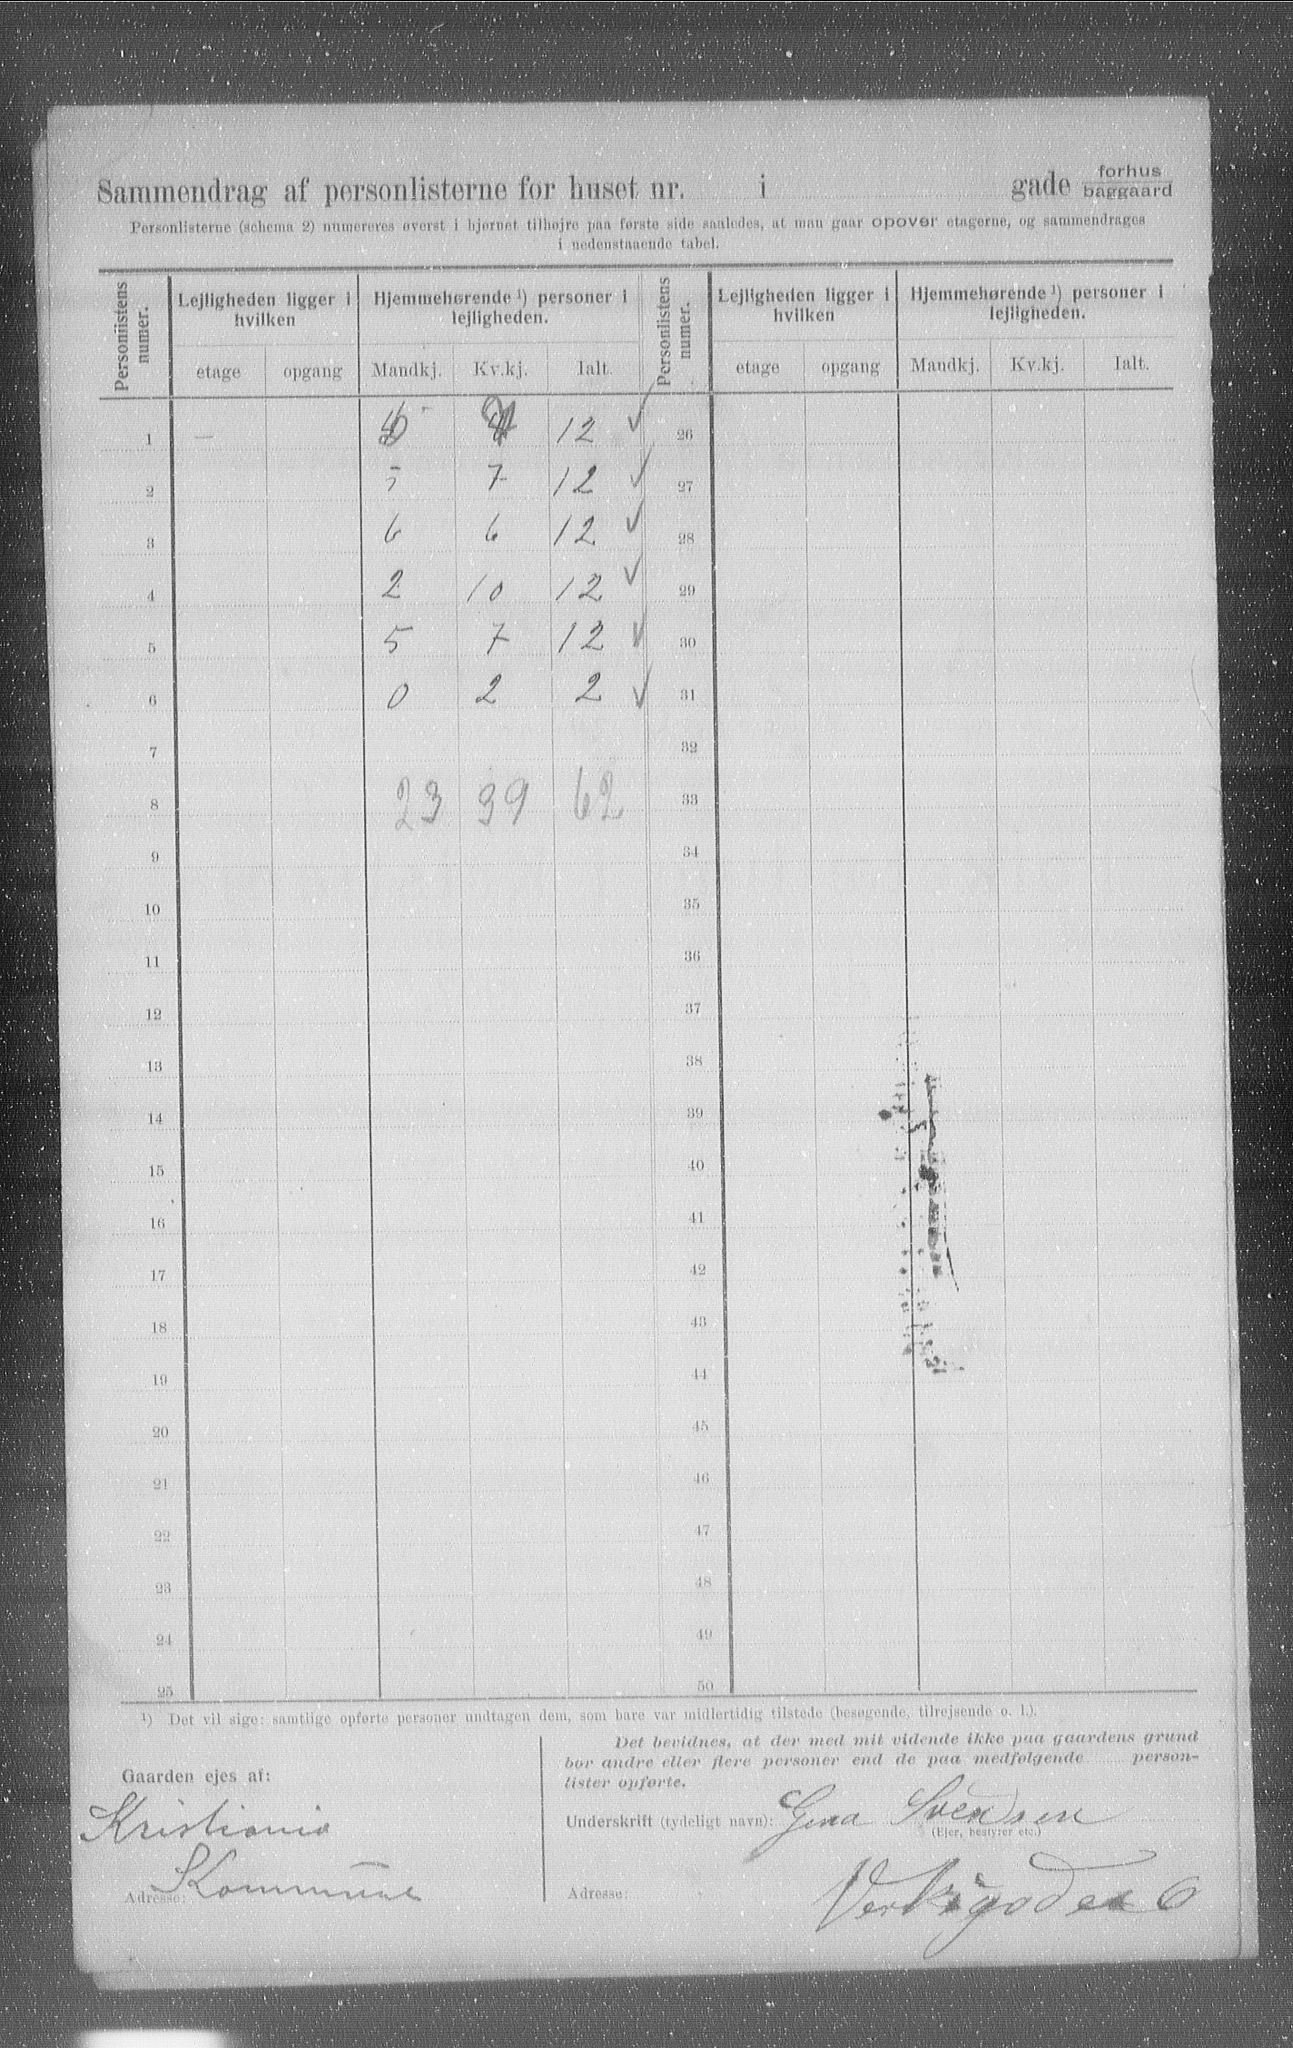 Sammendrag af personlisterne for huset nr. i gade forhus baggaard
Personlisterne (schema 2) numereres øverst i hjørnet tilhøjre paa første side saaledes, at man gaar opover etagerne, og sammendrages
i nedenstaaende tabel.
Personlistens numer. Lejligheden ligger i hvilken Hjemmehørende ¹) personer i lejligheden. Personlistens numer. Lejligheden ligger i hvilken Hjemmehørende ¹) personer i lejligheden.
etage opgang Mandkj. Kv.kj. Ialt. etage opgang Mandkj. Kv.kj. Ialt.
1 — 12 ✓ 26
2 5 7 12 ✓ 27
3 6 6 12 ✓ 28
4 2 10 12 ✓ 29
5 5 7 12 ✓ 30
6 0 2 2 ✓ 31
7 32
8 23 39 62 33
9 34
10 35
11 36
12 37
13 38
14 39
15 40
16 41
17 42
18 43
19 44
20 45
21 46
22 47
23 48
24 49
25 50
¹) Det vil sige: samtlige opførte personer undtagen dem, som bare var midlertidig tilstede (besøgende, tilrejsende o. l.).
Det bevidnes, at der med mit vidende ikke paa gaardens grund
bor andre eller flere personer end de paa medfølgende person-
lister opførte.
Gaarden ejes af:
Kristiania
Kommune
Adresse:
Underskrift (tydeligt navn): Gina Svendsen
(Ejer, bestyrer etc.)
Adresse: 6